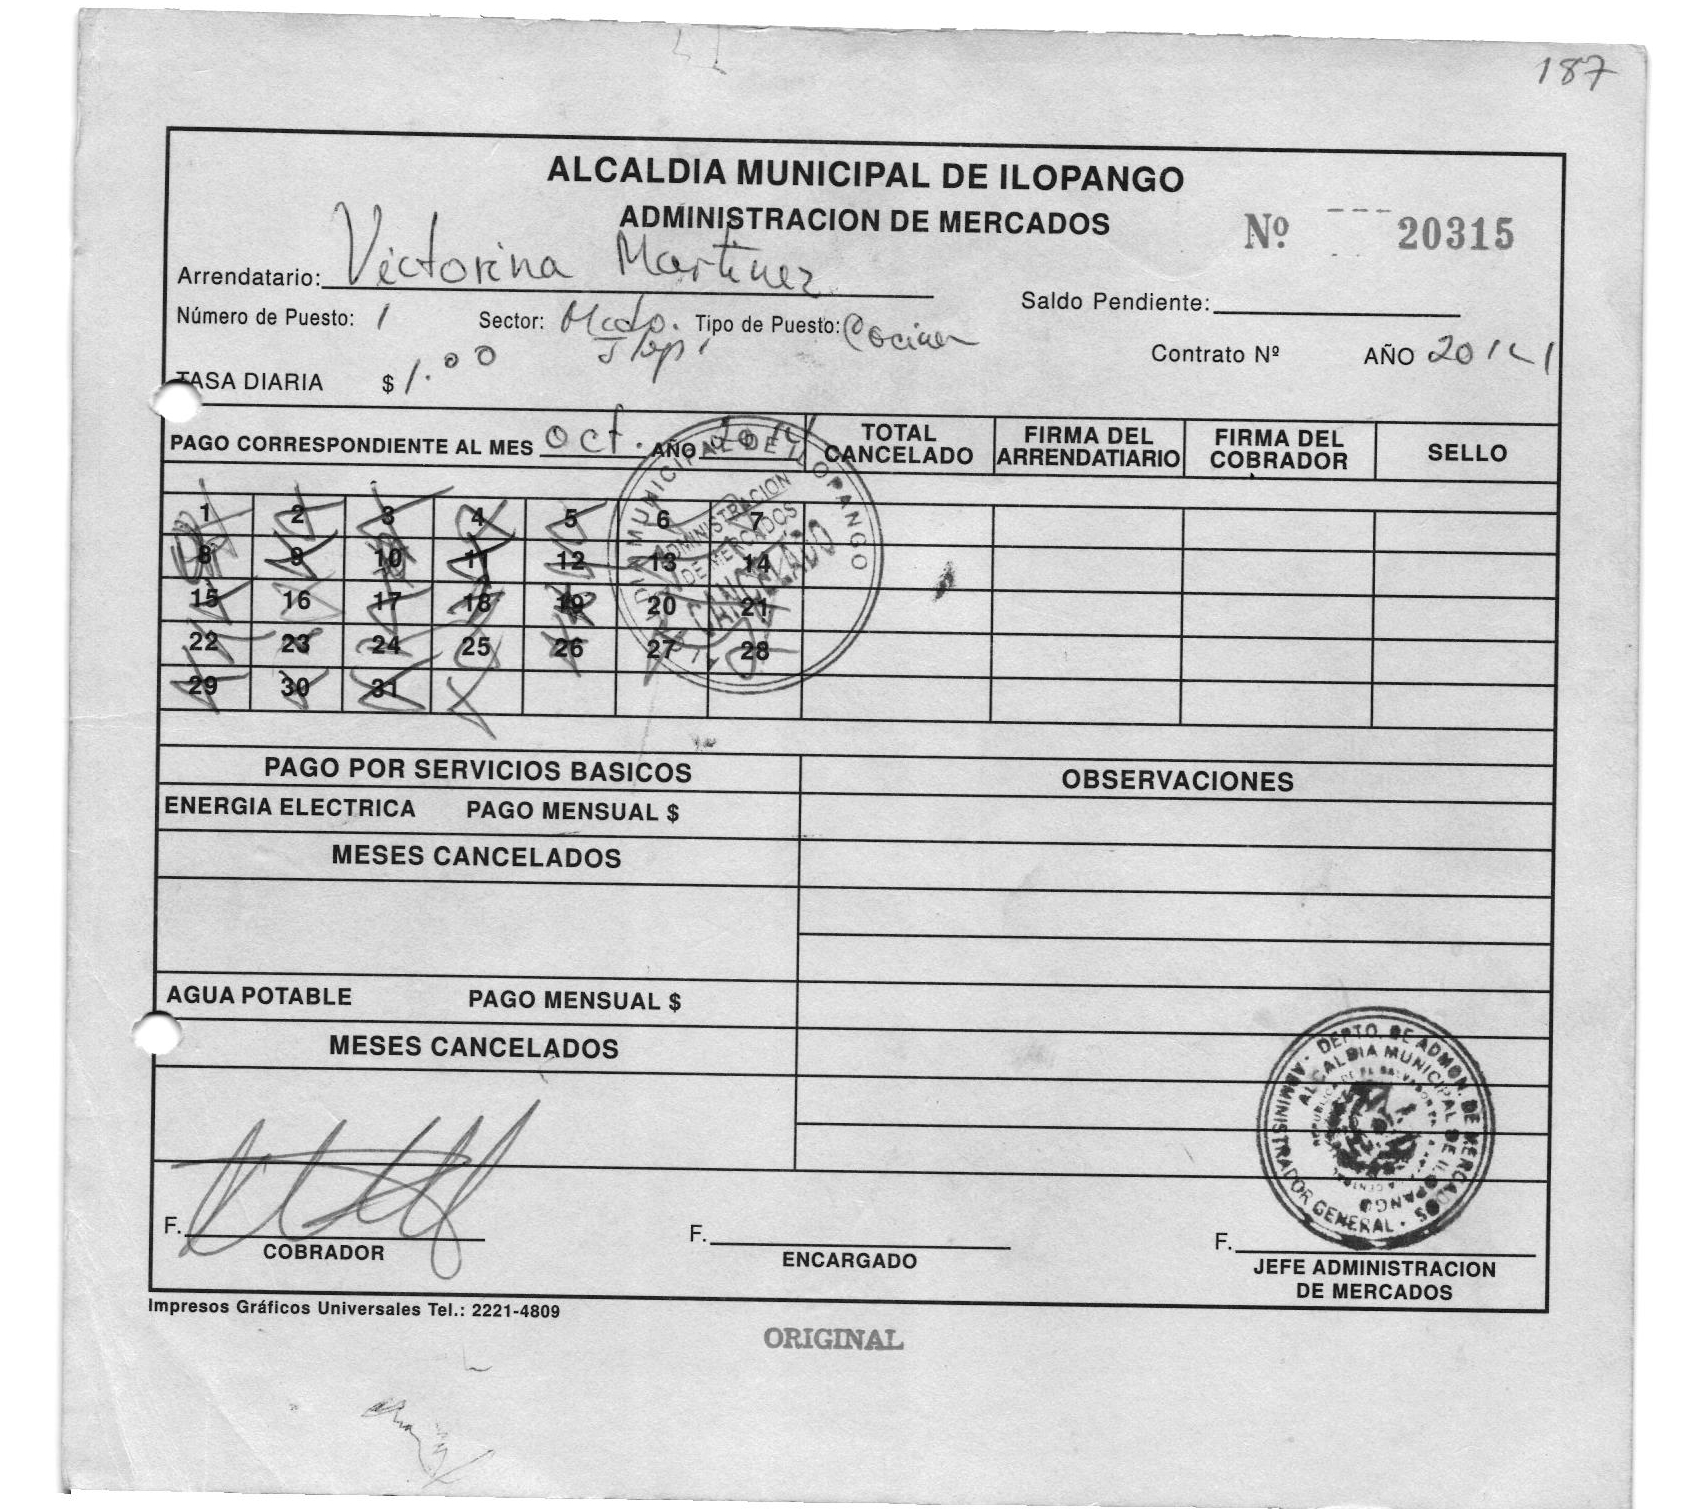 187
ALCALDIA MUNICIPAL DE ILOPANGO
ADMINISTRACION DE MERCADOS
Nº 20315
Arrendatario: Victorina Martinez
Saldo Pendiente:
Número de Puesto: 1 Sector: Mcdo. Ilop. Tipo de Puesto: Cocina
Contrato Nº AÑO 2014
TASA DIARIA $ 1.00
PAGO CORRESPONDIENTE AL MES oct. AÑO 2014
TOTAL CANCELADO
FIRMA DEL ARRENDATIARIO
FIRMA DEL COBRADOR
SELLO
1 2 3 4 5 6 7
8 9 10 11 12 13 14
15 16 17 18 19 20 21
22 23 24 25 26 27 28
29 30 31
ALCALDIA MUNICIPAL DE ILOPANGO
ADMINISTRACION
DE MERCADOS
CANCELADO
PAGO POR SERVICIOS BASICOS
OBSERVACIONES
ENERGIA ELECTRICA PAGO MENSUAL $
MESES CANCELADOS
AGUA POTABLE PAGO MENSUAL $
MESES CANCELADOS
DEPTO. DE ADMON. DE MERCADOS
ALCALDIA MUNICIPAL DE ILOPANGO
ADMINISTRADOR GENERAL
F.
COBRADOR
F.
ENCARGADO
F.
JEFE ADMINISTRACION
DE MERCADOS
Impresos Gráficos Universales Tel.: 2221-4809
ORIGINAL